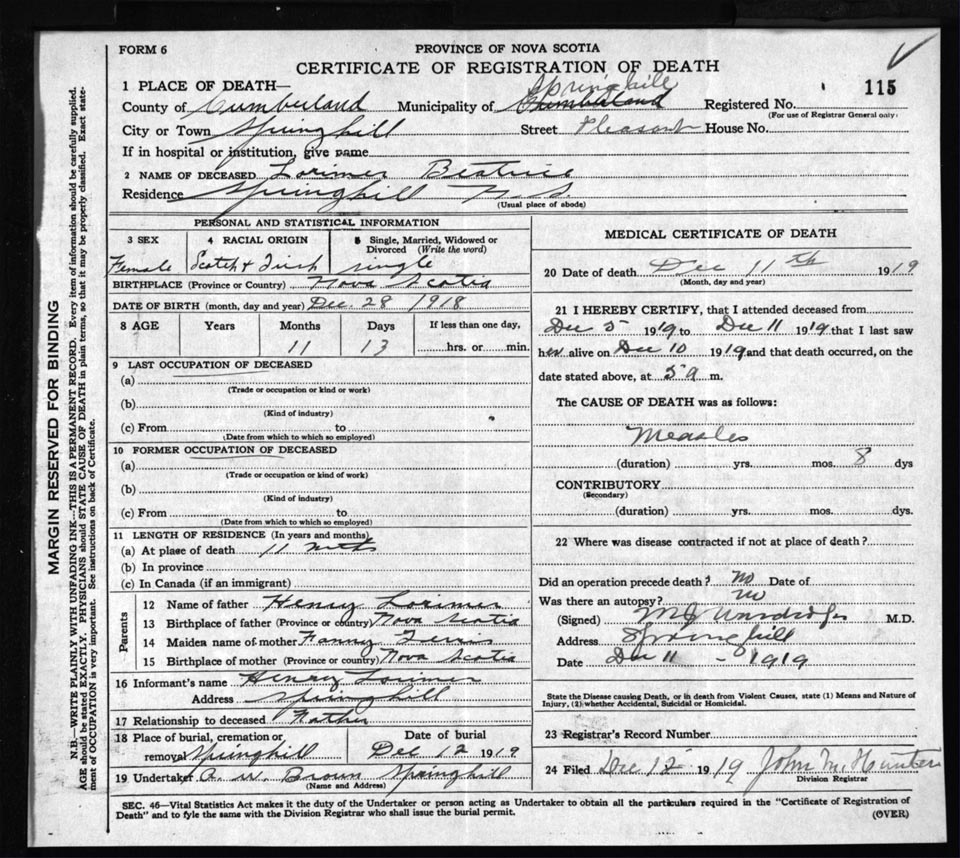 FORM 6
PROVINCE OF NOVA SCOTIA
CERTIFICATE OF REGISTRATION OF DEATH
115
1 PLACE OF DEATH—
Springhill
County of Cumberland Municipality of Cumberland Registered No.
(For use of Registrar General only)
City or Town Springhill Street Pleasant House No.
If in hospital or institution, give name
2 NAME OF DECEASED Lorimer Beatrice
Residence Springhill N.S.
(Usual place of abode)
PERSONAL AND STATISTICAL INFORMATION
3 SEX 4 RACIAL ORIGIN 5 Single, Married, Widowed or Divorced (Write the word)
Female Scotch & Irish single
BIRTHPLACE (Province or Country) Nova Scotia
DATE OF BIRTH (month, day and year) Dec. 28 1918
8 AGE Years Months Days If less than one day,
11 13 hrs. or min.
9 LAST OCCUPATION OF DECEASED
(a)
(Trade or occupation or kind or work)
(b)
(Kind of industry)
(c) From to
(Date from which to which so employed)
10 FORMER OCCUPATION OF DECEASED
(a)
(Trade or occupation or kind of work)
(b)
(Kind of industry)
(c) From to
(Date from which to which so employed)
11 LENGTH OF RESIDENCE (In years and months)
(a) At place of death 11 mths
(b) In province
(c) In Canada (if an immigrant)
Parents
12 Name of father Henry Lorimer
13 Birthplace of father (Province or country) Nova Scotia
14 Maiden name of mother Fanny
15 Birthplace of mother (Province or country) Nova Scotia
16 Informant's name Henry Lorimer
Address Springhill
17 Relationship to deceased Father
18 Place of burial, cremation or Date of burial
removal Springhill Dec 12 1919
19 Undertaker A. W. Brown Springhill
(Name and Address)
MEDICAL CERTIFICATE OF DEATH
20 Date of death Dec 11th 1919
(Month, day and year)
21 I HEREBY CERTIFY, that I attended deceased from
Dec 5 1919 to Dec 11 1919 that I last saw
her alive on Dec 10 1919 and that death occurred, on the
date stated above, at 5 a m.
The CAUSE OF DEATH was as follows:
Measles
(duration) yrs. mos. 8 dys
CONTRIBUTORY
(Secondary)
(duration) yrs. mos. dys.
22 Where was disease contracted if not at place of death?
Did an operation precede death? no Date of
Was there an autopsy? no
(Signed) M.D.
Address Springhill
Date Dec 11 - 1919
State the Disease causing Death, or in death from Violent Causes, state (1) Means and Nature of
Injury, (2) whether Accidental, Suicidal or Homicidal.
23 Registrar's Record Number
24 Filed Dec 12 1919 John M. Hunter
Division Registrar
SEC. 46—Vital Statistics Act makes it the duty of the Undertaker or person acting as Undertaker to obtain all the particulars required in the "Certificate of Registration of
Death" and to fyle the same with the Division Registrar who shall issue the burial permit.
(OVER)
MARGIN RESERVED FOR BINDING
N.B.—WRITE PLAINLY WITH UNFADING INK—THIS IS A PERMANENT RECORD. Every item of information should be carefully supplied.
AGE should be stated EXACTLY. PHYSICIANS should STATE CAUSE OF DEATH in plain terms, so that it may be properly classified. Exact state-
ment of OCCUPATION is very important. See instructions on back of Certificate.